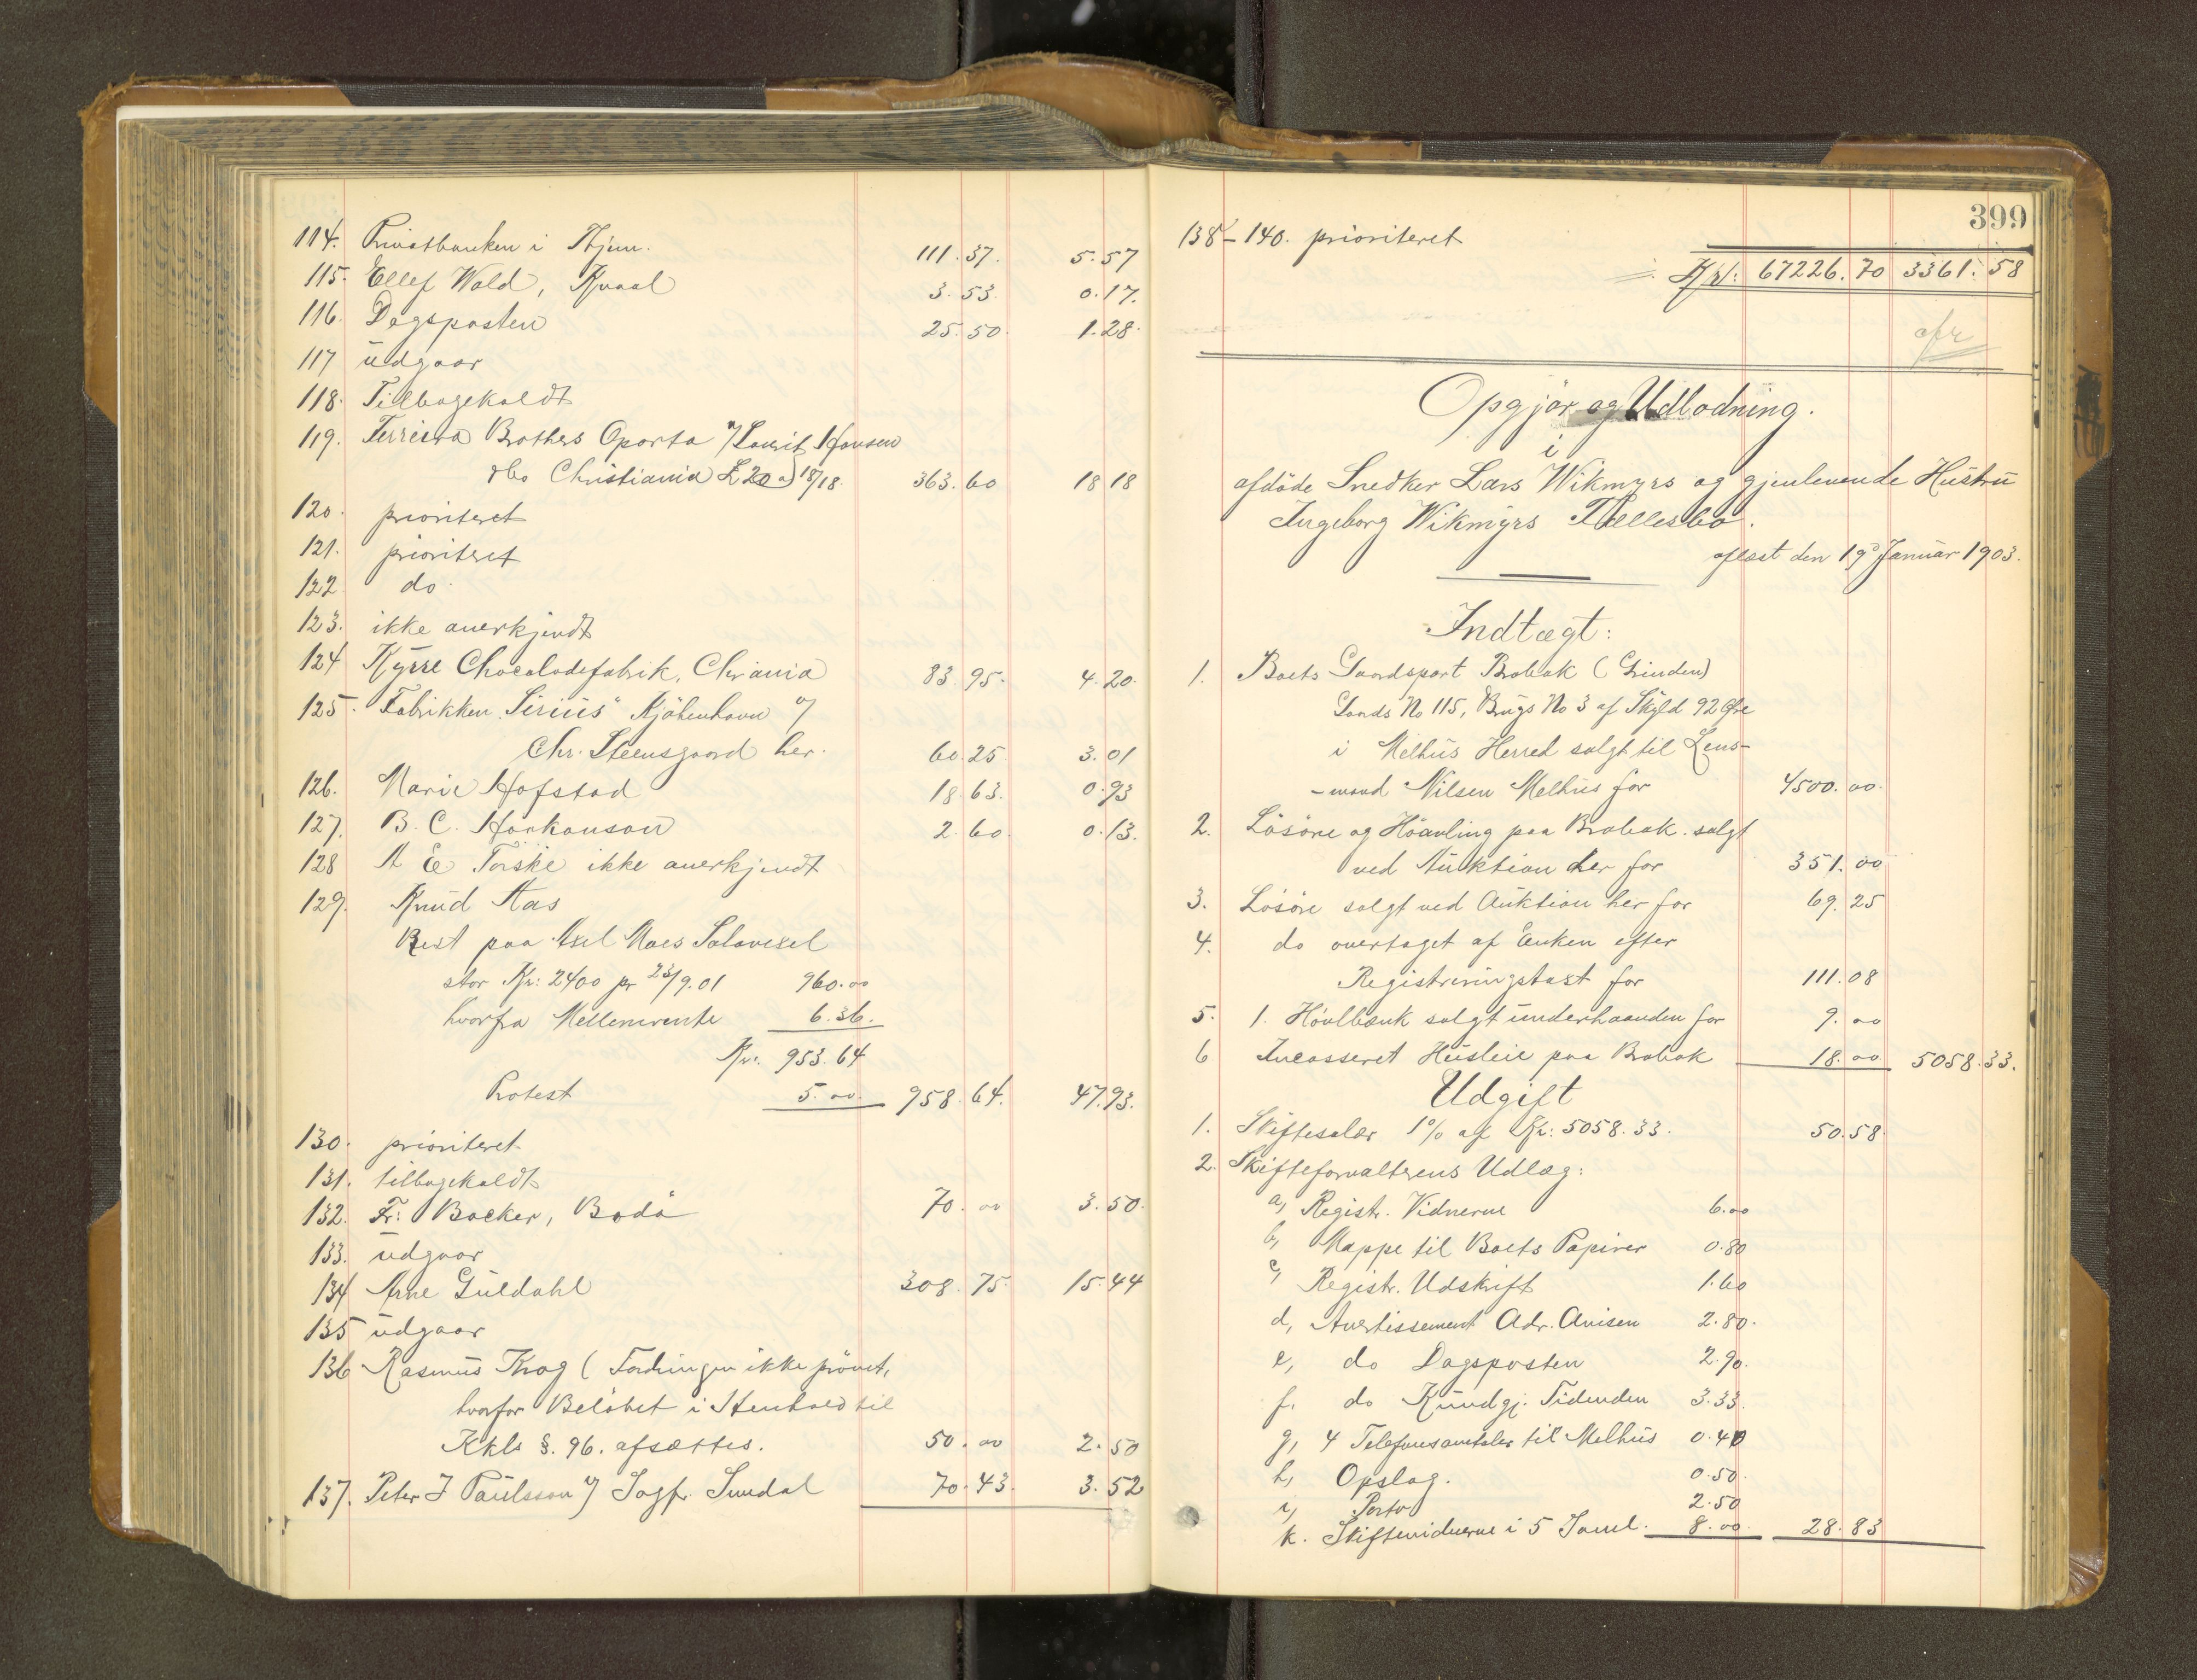 114. Privatbanken i Thjem. 111.37. 5.57
115. Ellef Wold, Kvaal 3.53. 0.17.
116. Dagsposten 25.50. 1.28.
117 udgaar
118. Tilbagekaldt
119. Ferreira Brothers Oporto v/ Lauritz Hansen
& Co Christiania £ 20 a) 18/18. 363.60 18 18
120. prioriteret
121. prioriteret
122 do.
123. ikke anerkjendt
124 Kyrre Chocoladefabrik, Chr ania 83.95. 4.20.
125. Fabrikken "Sirius" Kjöbenhavn v/
Chr. Steensgaard her. 60.25 3.01
126. Marie Hofstad 18.63. 0.93
127. B. C. Haakonson 2.60. 0.13.
128 A E Torske ikke anerkjendt
129. Knud Aas
Rest paa Axel Moes Solavexel
stor Kr: 2400 pr 23/9.01 960.00
hvorfra Mellemrente 6.36.
Kr. 953.64
Protest 5.00. 958.64. 47.93.
130. prioriteret
131. tilbagekaldt
132. Fr: Backer, Bodö 70.00 3.50.
133. udgaar
134 Arne Guldahl 308.75. 15.44
135 udgaar
136 Rasmus Krog (Fordringen ikke prövet,
hvorfor Belöbet i Henhold til
Kkls §. 96. afsættes. 50.00 2.50
137. Peter J Paulsson v/ Sagf. Sundal 70.43. 3.52
399
138-140. prioriteret
Kr: 67226.70 3361.58
afr
Opgjör og Udlodning.
i
afdöde Snedker Lars Wikmyrs og gjenlevende Hustru
Ingeborg Wikmyrs Fællesbo.
aflæst den 19. Januar 1903.
Indtægt:
1. Boets Gaardspart Brobak (Grinden)
Gaards No 115, Brugs No 3 af Skyld 92 Øre
i Melhus Herred solgt til Lens-
-mand Nilsen Melhus for 4500.00.
2. Lösöre og Höavling paa Brobak solgt
ved Auktion der for 351.00
3. Lösöre solgt ved Auktion her for 69.25
4. do overtaget af Enken efter
Registreringstaxt for 111.08
5. 1. Hövlbænk solgt underhaanden for 9.00
6 Incasseret Husleie paa Brobak 18.00 5058.33.
Udgift
1. Skiftesalær 1% af Kr: 5058.33. 50.58.
2. Skifteforvalterens Udlæg:
a, Registr. Vidnerne 6.00
b, Mappe til Boets Papirer 0.80
c, Registr. Udskrift 1.60
d, Avertissement Adr. Avisen 2.80.
e, do Dagsposten 2.90.
f. do Kundgj. Tidenden 3.33.
g, 4 Telefonsamtaler til Melhus 0.40
h, Opslag. 0.50.
i, Porto 2.50
k. Skiftevidnerne i 5 Saml. 8.00. 28.83